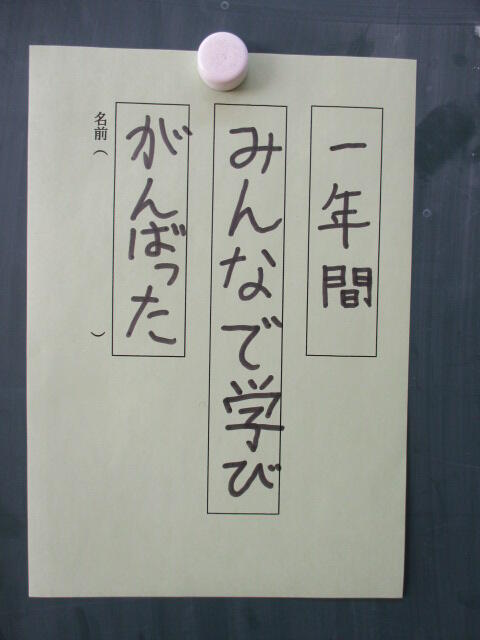 一年間
みんなで学び
がんばった
名前（　　　）